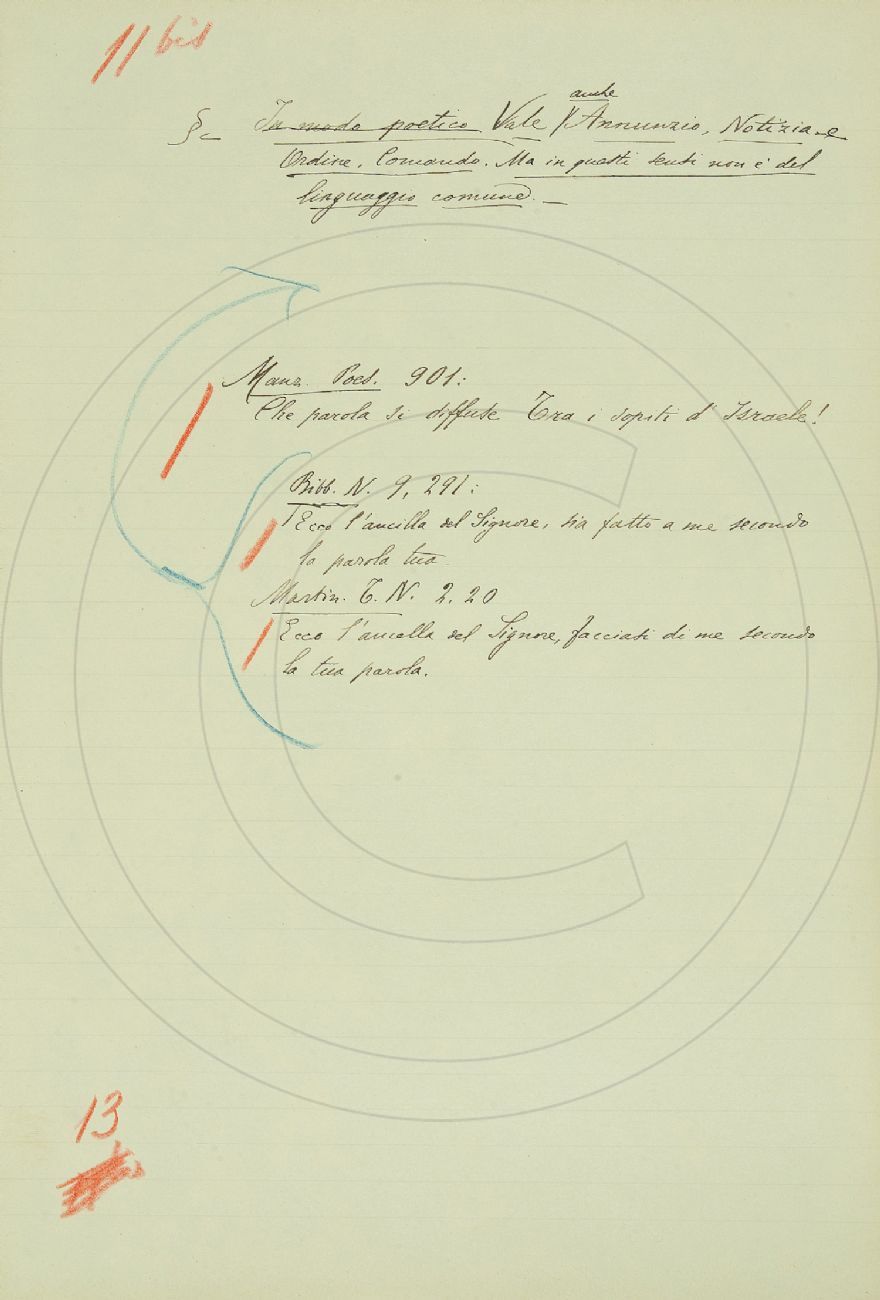 11 bis
§ – In modo poetico Vale anche Annunzio, Notizia e
Ordine, Comando. Ma in questi sensi non è del
linguaggio comune. –
Manz. Poes. 901:
Che parola si diffuse Tra i sopiti d'Israele!
Bibb. N. 9, 291:
Ecco l'ancilla del Signore, sia fatto a me secondo
la parola tua.
Martin. T. N. 2. 20
Ecco l'ancella del Signore, facciasi di me secondo
la tua parola.
13